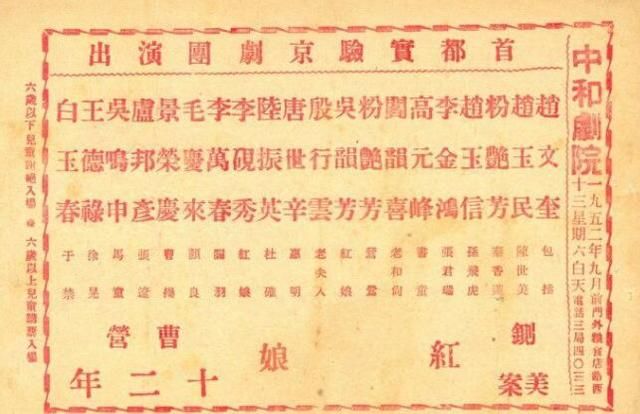 中和劇院
一九五二年九月前門外糧食店路西
十三星期六白天電話三局四〇三三
首都實驗京劇團演出
趙文奎 包拯
趙玉民 陳世美
粉艷芳 秦香蓮
趙玉信 孫飛虎
李金鴻 張君瑞
高元峰 書童
閻韻喜 老和尚
粉艷芳 鶯鶯
吳韻芳 紅娘
殷行雲 老夫人
唐世辛 惠明
陸振英 杜確
李硯秀 紅娘
李萬春 關羽
毛慶來 顏良
景榮慶 曹操
盧邦彥 張遼
吳鳴申 馬童
王德祿 徐晃
白玉春 于禁
鍘美案
紅娘
曹營十二年
六歲以下兒童謝絕入場 ● 六歲以上兒童購票入場